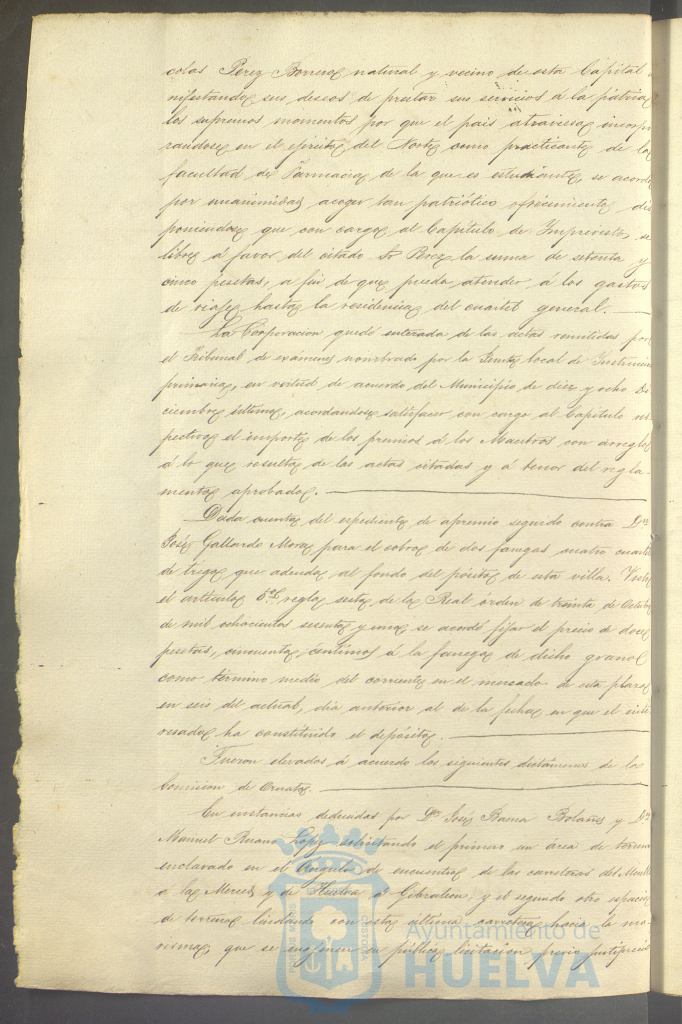 colas Perez Borrero natural y vecino de esta Capital
nifestando sus deseos de prestar sus servicios á la pátria
los supremos momentos por que el pais atraviesa incorpo
randose en el ejército del Norte como practicante de la
facultad de Farmacia de la que es estudiante, se acordó
por unanimidad acoger tan patriótico ofrecimiento dis
poniendose que con cargo al Capítulo de Imprevistos se
libre á favor del citado Sr Perez la suma de setenta y
cinco pesetas, a fin de que pueda atender á los gastos
de viaje hasta la residencia del cuartel general.
La Corporacion quedó enterada de las actas remitidas por
el Tribunal de exámenes nombrado por la Junta local de Instruccion
primaria, en virtud de acuerdo del Municipio de diez y ocho Di
ciembre último, acordandose satisfacer con cargo al Capítulo res
pectivo el importe de los premios á los Maestros con arreglo
á lo que resulta de las actas citadas y á tenor del regla-
mento aprobado.
Dada cuenta del espediente de apremio seguido contra Dn
José Gallardo Mora para el cobro de dos fanegas cuatro cuartill
de trigo que adeuda al fondo del pósito de esta villa. Visto
el artículo 6º regla sesta de la Real órden de treinta de Octubre
de mil ochocientos sesenta y uno se acordó fijar el precio de doce
pesetas, cincuenta céntimos á la fanega de dicho grano
como término medio del corriente en el mercado de esta plaza
en seis del actual, dia anterior al de la fecha en que el inte
resado ha constituido el depósito.
Fueron elevados á acuerdo los siguientes dictámenes de la
Comision de Ornato.
En instancias deducidas por Dn José Barea Bolaños y Dn
Manuel Ruano Lopez solicitando el primero un área de terreno
enclavado en el ángulo de encuentro de las carreteras del Muelle
á la Merced y de Huelva á Gibraleon, y el segundo otro espacio
de terreno lindando con esta última carretera hacia la ma-
risma, que se enagenen en pública licitacion previo justiprecio
Ayuntamiento de
HUELVA